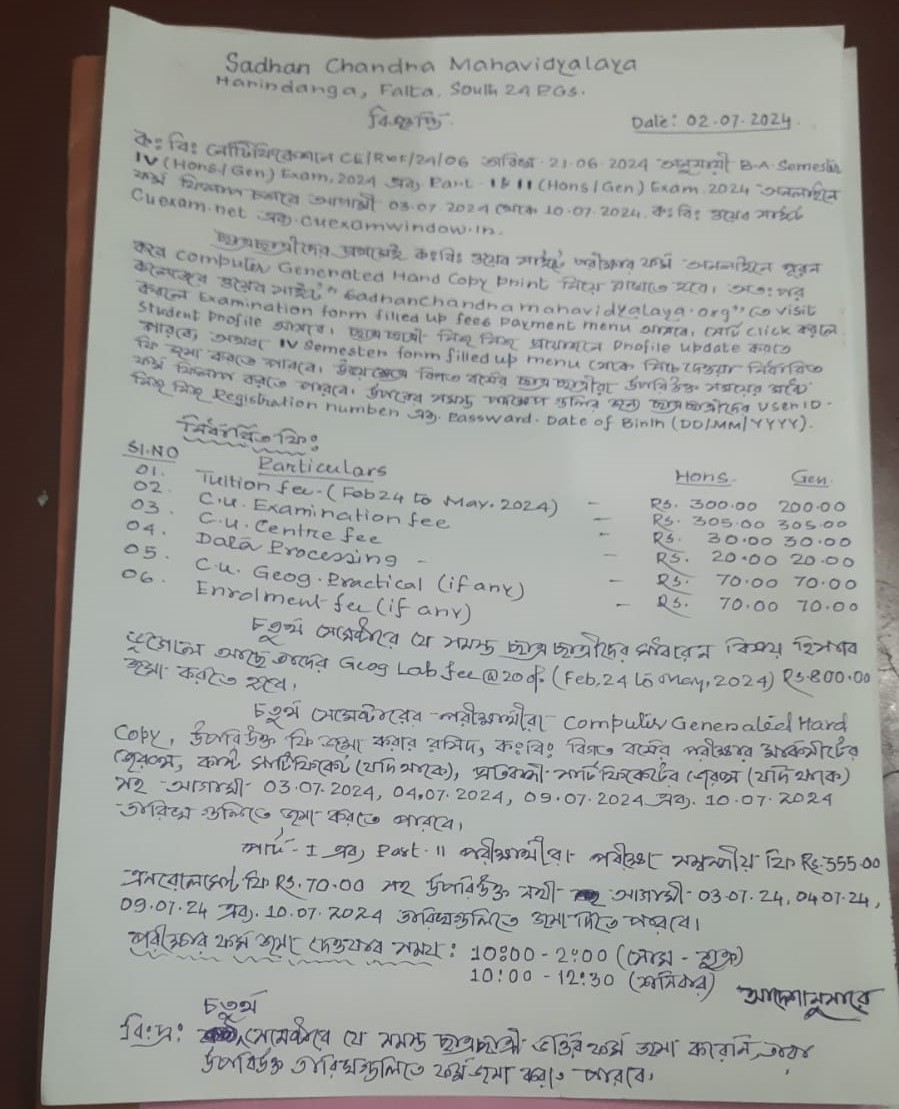 Sadhan Chandra Mahavidyalaya
Harindanga, Falta, South 24 PGs.
বিজ্ঞপ্তি
Date: 02.07.2024
কঃ বিঃ নোটিফিকেশন CE/RWF/24/06 তারিখ 21.06.2024 অনুযায়ী B.A. Semester
IV (Hons/Gen) Exam, 2024 এবং Part - I & II (Hons/Gen) Exam. 2024 অনলাইনে
ফর্ম ফিলাপ চলবে আগামী 03.07.2024 থেকে 10.07.2024. কঃ বিঃ ওয়েব সাইট
Cuexam.net এবং cuexamwindow.in.
ছাত্রছাত্রীদের প্রথমেই কঃবিঃ ওয়েব সাইটে পরীক্ষার ফর্ম অনলাইনে পূরন
করে Computer Generated Hard Copy print নিয়ে রাখতে হবে। অতঃপর
কলেজের ওয়েব সাইট "Sadhanchandramahavidyalaya.org" তে visit
করলে Examination form filled up fees payment menu আসবে, সেটি click করলে
Student profile আসবে। ছাত্র ছাত্রী নিজ নিজ প্রয়োজনে Profile update করতে
পারবে, অথবা IV Semester form filled up menu থেকে নির্ধারিত
ফি জমা করতে পারবে। বিগত বর্ষের ছাত্র ছাত্রীরা উপরিউক্ত সময়ের মধ্যে
ফর্ম ফিলাপ করতে পারবে। উপরের সমস্ত গুলির জন্য ছাত্রছাত্রীদের User ID -
নিজ নিজ Registration number এবং Passward - Date of Birth (DD/MM/YYYY).
নির্ধারিত ফিঃ
Sl.NO Particulars Hons. Gen.
01. Tuition fee - (Feb 24 to May. 2024) - Rs. 300.00 200.00
02. C.U. Examination fee - Rs. 305.00 305.00
03. C.U. Centre fee - Rs. 30.00 30.00
04. Data Processing - - Rs. 20.00 20.00
05. C.U. Geog. Practical (if any) - Rs. 70.00 70.00
06. Enrolment fee (if any) - Rs. 70.00 70.00
চতুর্থ সেমেস্টারে যে সমস্ত ছাত্র ছাত্রীদের বিষয় হিসাবে
ভূগোল আছে তাদের Geog Lab fee @ 200/- (Feb, 24 to May, 2024) Rs.800.00
জমা করতে হবে।
চতুর্থ সেমেস্টারের পরীক্ষার্থীরা Computer Generated Hard
Copy, উপরিউক্ত ফি জমা করার রসিদ, কঃবিঃ বিগত বর্ষের পরীক্ষার মার্কশীটের
জেরক্স, কাস্ট সার্টিফিকেট (যদি থাকে), প্রতিবন্ধী সার্টিফিকেটের জেরক্স (যদি থাকে)
সহ আগামী 03.07.2024, 04.07.2024, 09.07.2024 এবং 10.07.2024
তারিখ গুলিতে জমা করতে পারবে।
পার্ট - I এবং Part - II পরীক্ষার্থীরা পরীক্ষা সম্বন্ধীয় ফি Rs. 355.00
এনরোলমেন্ট ফি Rs. 70.00 সহ উপরিউক্ত নথী আগামী 03.07.24, 04.07.24,
09.07.24 এবং 10.07.2024 তারিখগুলিতে জমা দিতে পারবে।
পরীক্ষার ফর্ম জমা দেওয়ার সময়: 10:00 - 2:00 (সোম - শুক্র)
10:00 - 12:30 (শনিবার)
আদেশানুসারে
চতুর্থ
বিঃদ্রঃ সেমেস্টারে যে সমস্ত ছাত্রছাত্রী ভর্তির ফর্ম জমা করেনি তারা
উপরিউক্ত তারিখগুলিতে ফর্ম জমা করতে পারবে।